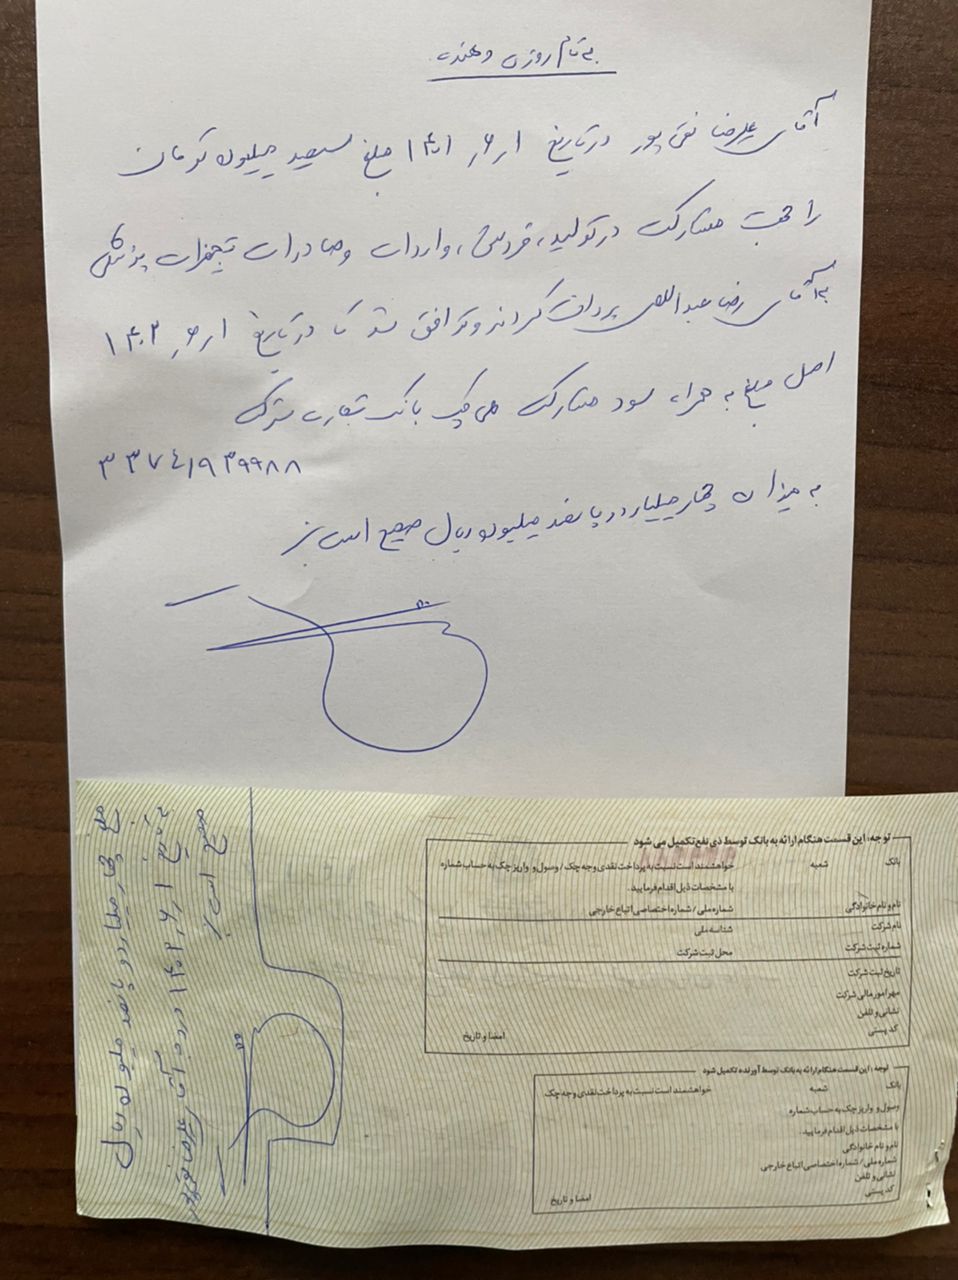 به نام روزی دهنده
آقای علیرضا نقی پور در تاریخ ۱۴۰۱/۶/۱ مبلغ سیصد میلیون تومان
را جهت مشارکت در تولید، فروش، واردات و صادرات تجهیزات پزشکی
به آقای رضا عبداللهی پرداخت کردند و توافق شد تا در تاریخ ۱۴۰۲/۶/۱
اصل مبلغ به همراه سود مشارکت طی چک بانک تجارت شرکت
۳۳۷۴۱۹۳۹۹۸۸
به میزان چهار میلیارد و پانصد میلیون ریال صحیح است
مبلغ چهار میلیارد و پانصد میلیون ریال
به تاریخ ۱۴۰۲/۶/۱ در وجه آقای علیرضا نقی پور
صحیح است
توجه: این قسمت هنگام ارائه به بانک توسط ذی نفع تکمیل می شود
بانک شعبه خواهشمند است نسبت به پرداخت نقدی وجه چک / وصول و واریز چک به حساب شماره
با مشخصات ذیل اقدام فرمایید.
نام و نام خانوادگی شماره ملی / شماره اختصاصی اتباع خارجی
نام شرکت شناسه ملی
شماره ثبت شرکت محل ثبت شرکت
تاریخ ثبت شرکت
مهر امور مالی شرکت
نشانی و تلفن
کد پستی امضا و تاریخ
توجه: این قسمت هنگام ارائه به بانک توسط آورنده تکمیل شود
بانک شعبه خواهشمند است نسبت به پرداخت نقدی وجه چک
وصول و واریز چک به حساب شماره
با مشخصات ذیل اقدام فرمایید.
نام و نام خانوادگی
شماره ملی / شماره اختصاصی اتباع خارجی
نشانی و تلفن
کد پستی امضا و تاریخ